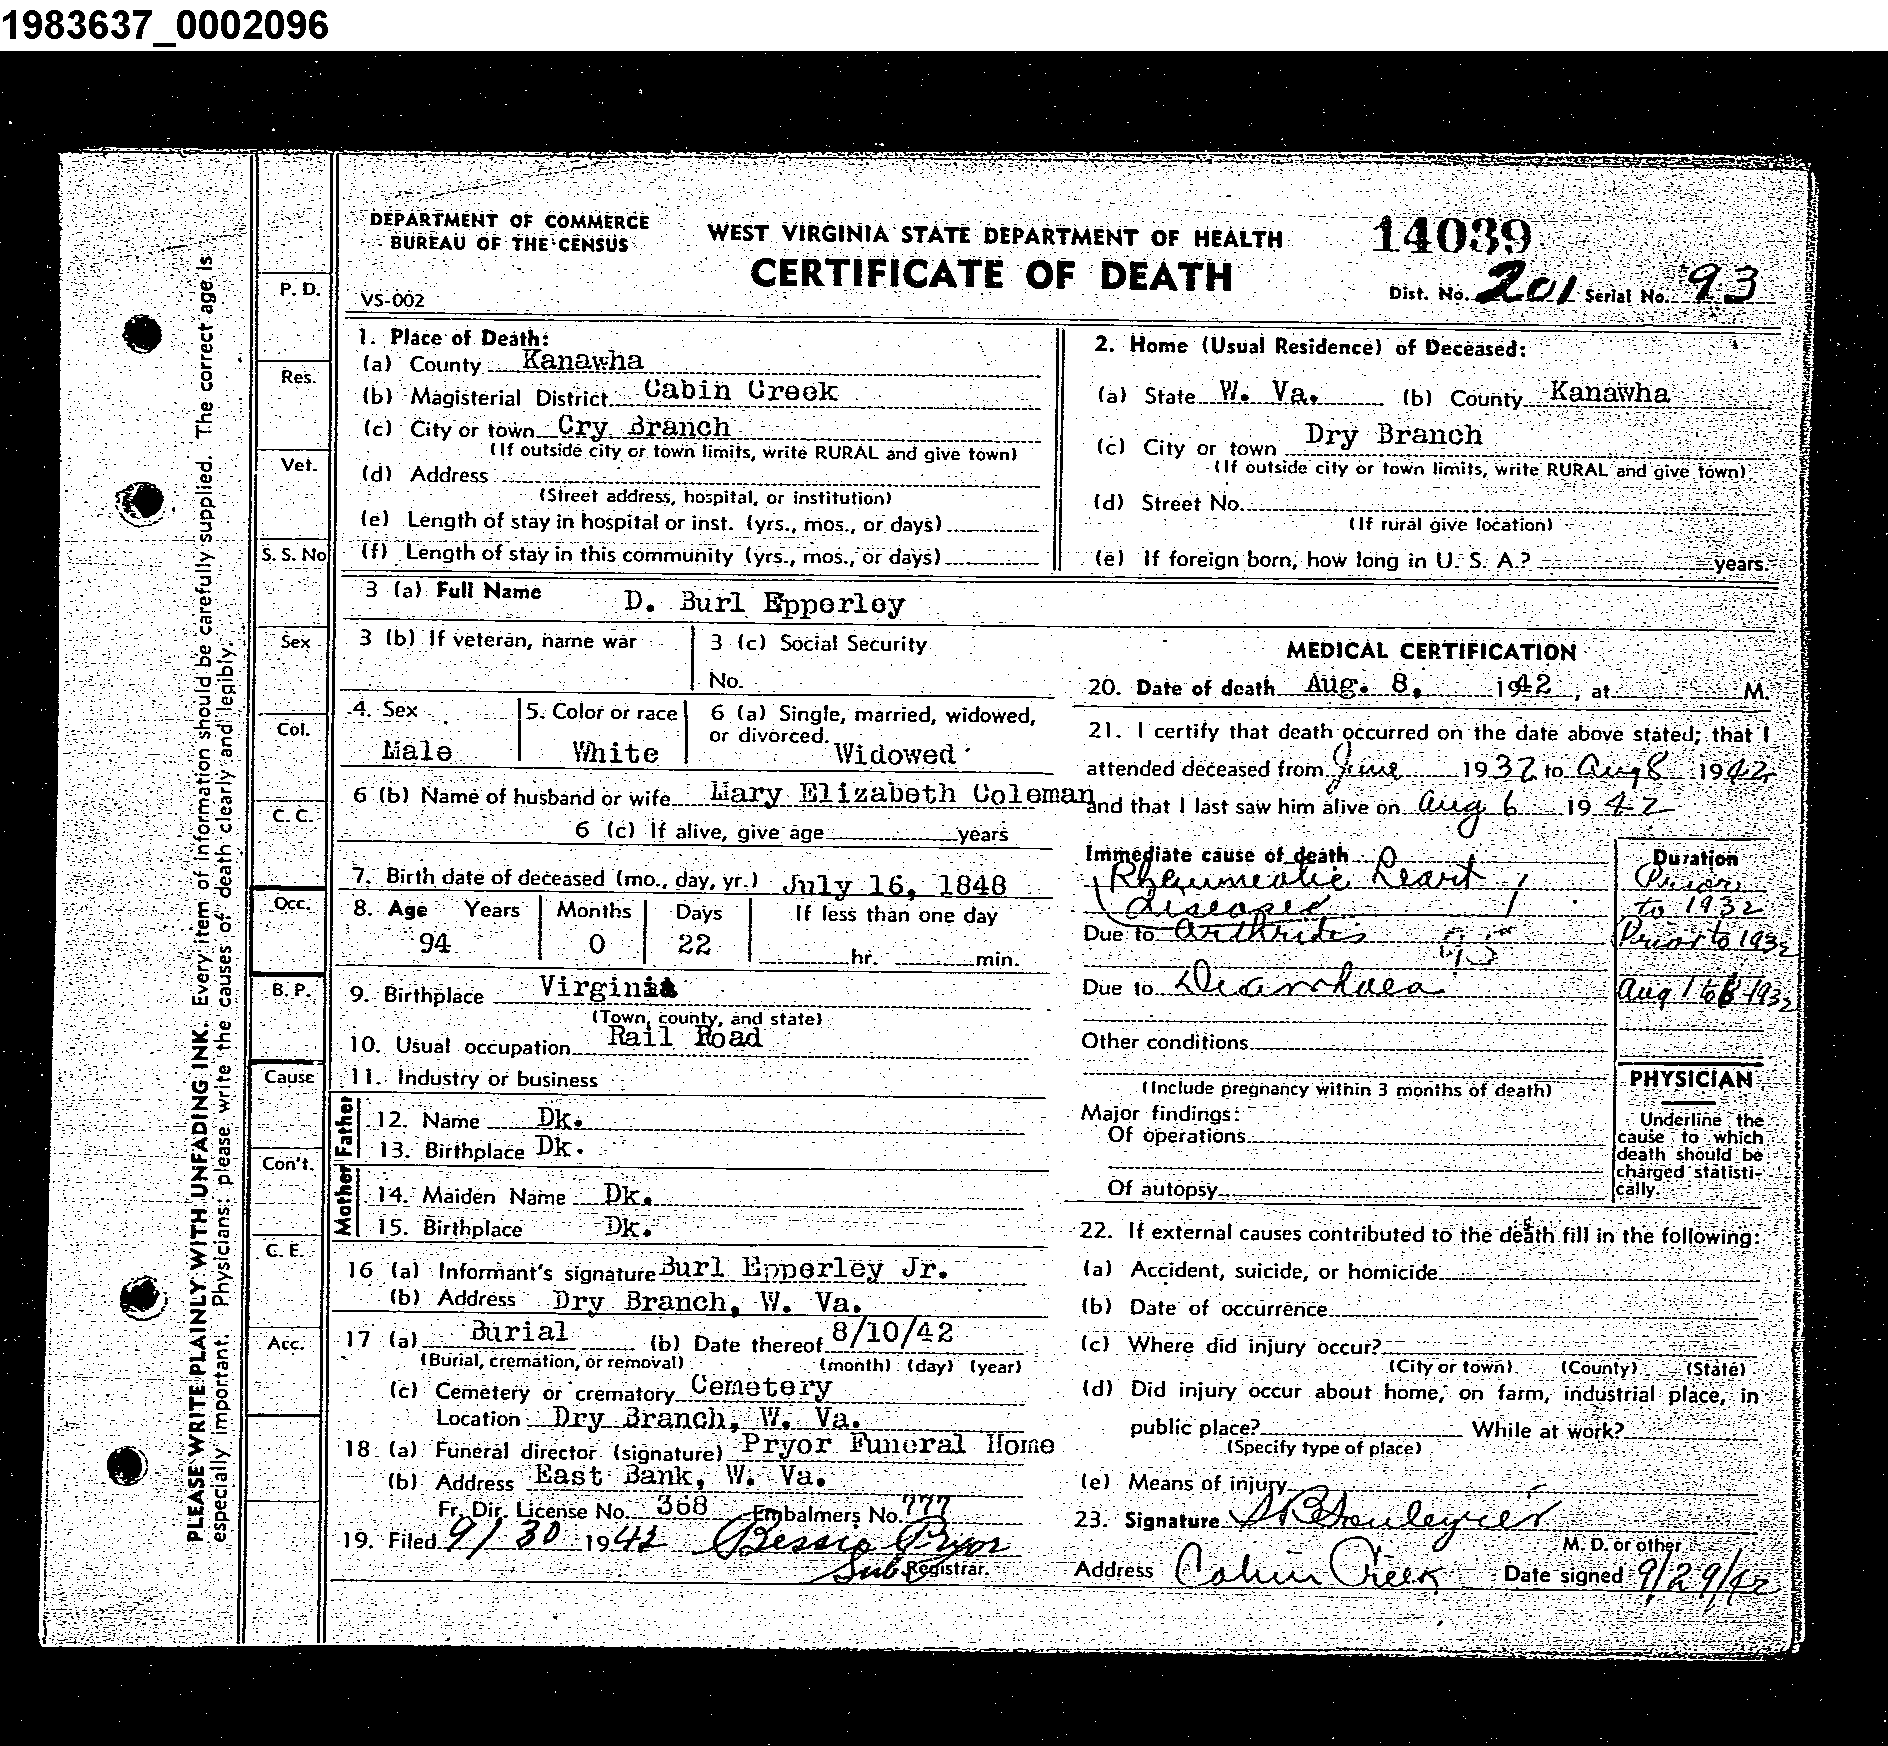 1983637_0002096
DEPARTMENT OF COMMERCE
BUREAU OF THE CENSUS
WEST VIRGINIA STATE DEPARTMENT OF HEALTH
CERTIFICATE OF DEATH
14039
VS-002
Dist. No. 201 Serial No. 93
1. Place of Death:
(a) County Kanawha
(b) Magisterial District Cabin Creek
(c) City or town Cry Branch
(If outside city or town limits, write RURAL and give town)
(d) Address
(Street address, hospital, or institution)
(e) Length of stay in hospital or inst. (yrs., mos., or days)
(f) Length of stay in this community (yrs., mos., or days)
2. Home (Usual Residence) of Deceased:
(a) State W. Va. (b) County Kanawha
(c) City or town Dry Branch
(If outside city or town limits, write RURAL and give town)
(d) Street No.
(If rural give location)
(e) If foreign born, how long in U. S. A.? years.
3 (a) Full Name D. Burl Epperley
3 (b) If veteran, name war
3 (c) Social Security
No.
4. Sex
Male
5. Color or race
White
6 (a) Single, married, widowed,
or divorced. Widowed
6 (b) Name of husband or wife Mary Elizabeth Coleman
6 (c) If alive, give age years
7. Birth date of deceased (mo., day, yr.) July 16, 1848
8. Age Years Months Days If less than one day
94 0 22 hr. min.
9. Birthplace Virginia
(Town, county, and state)
10. Usual occupation Rail Road
11. Industry or business
Father
12. Name Dk.
13. Birthplace Dk.
Mother
14. Maiden Name Dk.
15. Birthplace Dk.
16 (a) Informant's signature Burl Epperley Jr.
(b) Address Dry Branch, W. Va.
17 (a) Burial (b) Date thereof 8/10/42
(Burial, cremation, or removal) (month) (day) (year)
(c) Cemetery or crematory Cemetery
Location Dry Branch, W. Va.
18 (a) Funeral director (signature) Pryor Funeral Home
(b) Address East Bank, W. Va.
Fr. Dir. License No. 368 Embalmers No. 777
19. Filed 9/30 1942 Bessie Pryor
Sub Registrar.
MEDICAL CERTIFICATION
20. Date of death Aug. 8, 1942, at M.
21. I certify that death occurred on the date above stated; that I
attended deceased from June 1932 to Aug 8 1942
and that I last saw him alive on Aug 6 1942
Immediate cause of death
Rheumatic Heart
diseases
Due to Arthrites
95
Due to Diarrhaea
Duration
Prior
to 1932
Prior to 1932
Aug 1 to 8 1932
Other conditions
(Include pregnancy within 3 months of death)
Major findings:
Of operations
Of autopsy
PHYSICIAN
Underline the
cause to which
death should be
charged statisti-
cally.
22. If external causes contributed to the death fill in the following:
(a) Accident, suicide, or homicide
(b) Date of occurrence
(c) Where did injury occur?
(City or town) (County) (State)
(d) Did injury occur about home, on farm, industrial place, in
public place? While at work?
(Specify type of place)
(e) Means of injury
23. Signature
M. D. or other
Address Cabin Creek Date signed 9/29/42
P. D.
Res.
Vet.
S. S. No
Sex
Col.
C. C.
Occ.
B. P.
Cause
Con't.
C. E.
Acc.
PLEASE WRITE PLAINLY WITH UNFADING INK. Every item of information should be carefully supplied. The correct age is
especially important. Physicians: please write the causes of death clearly and legibly.